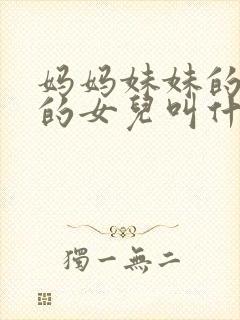 妈妈妹妹的
的女兒叫什
獨一無二